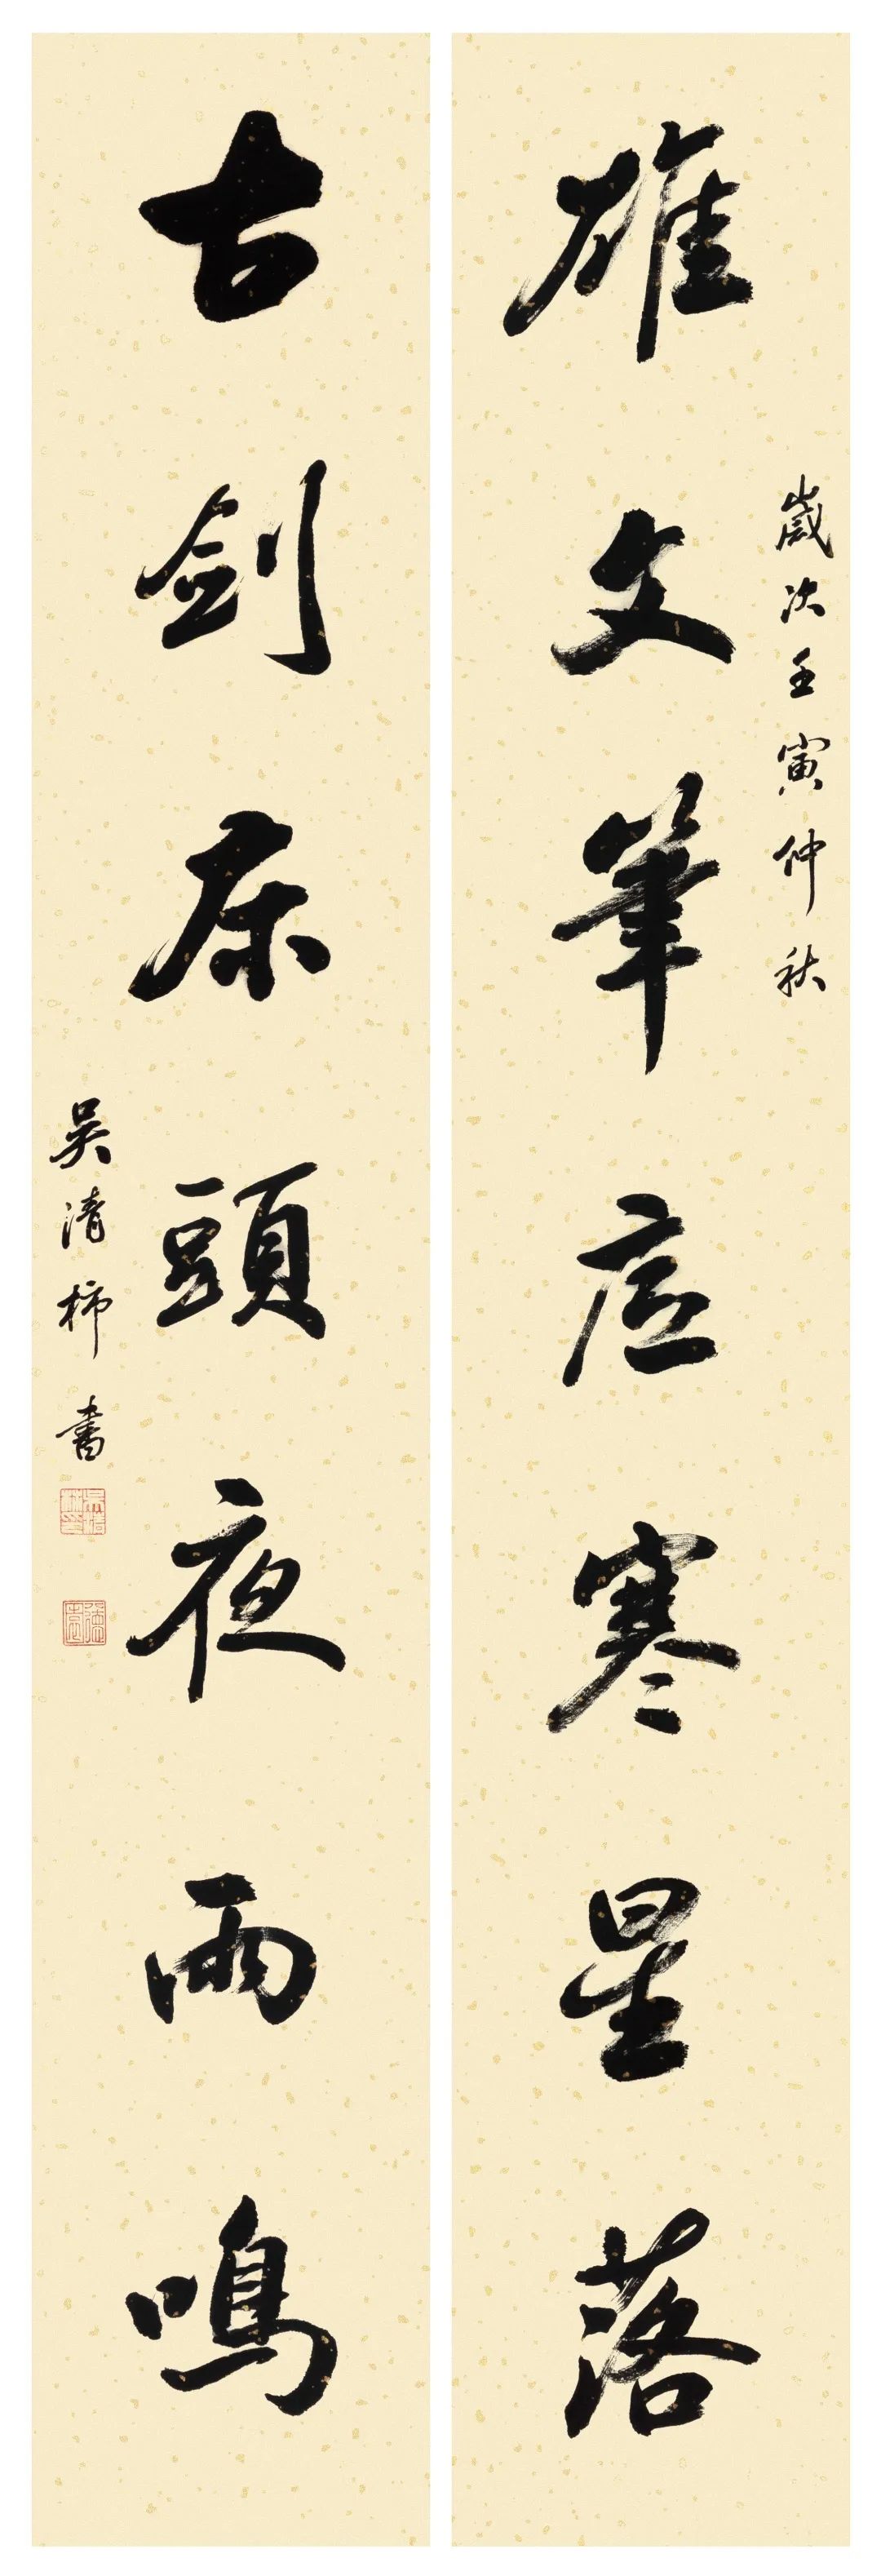 歲次壬寅仲秋
雄文筆底寒星落
古劍床頭夜雨鳴
吳清柿書